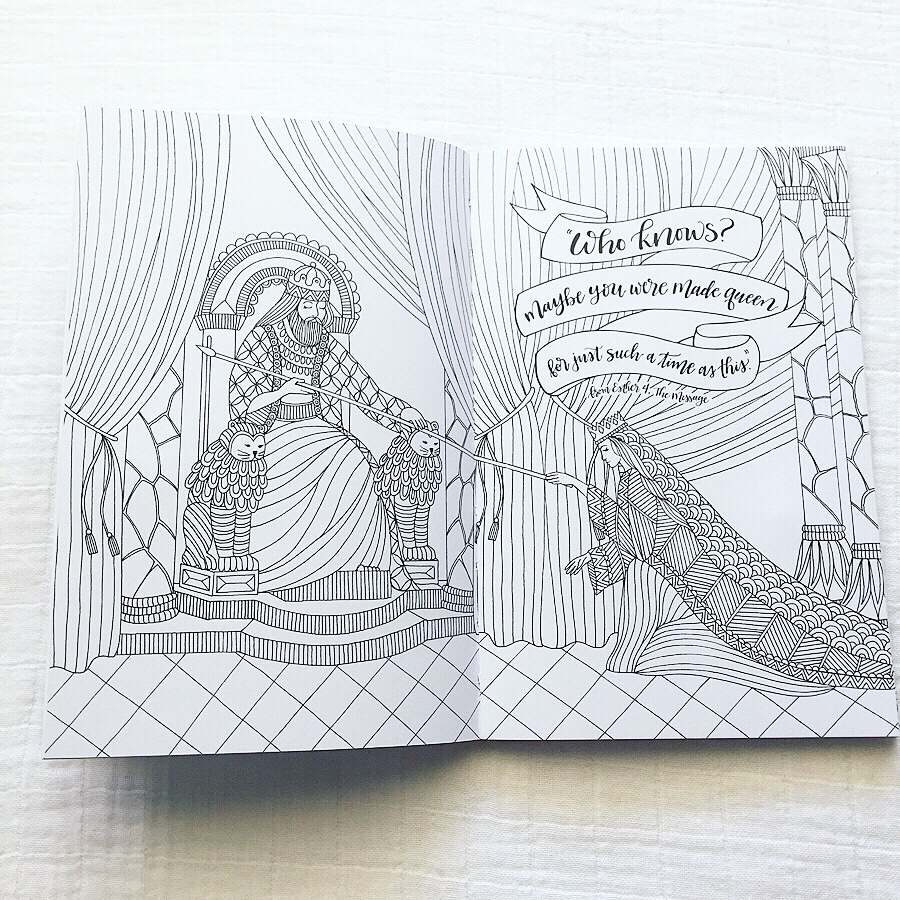 "Who knows?
Maybe you were made queen
for just such a time as this."
from Esther 4, the Message